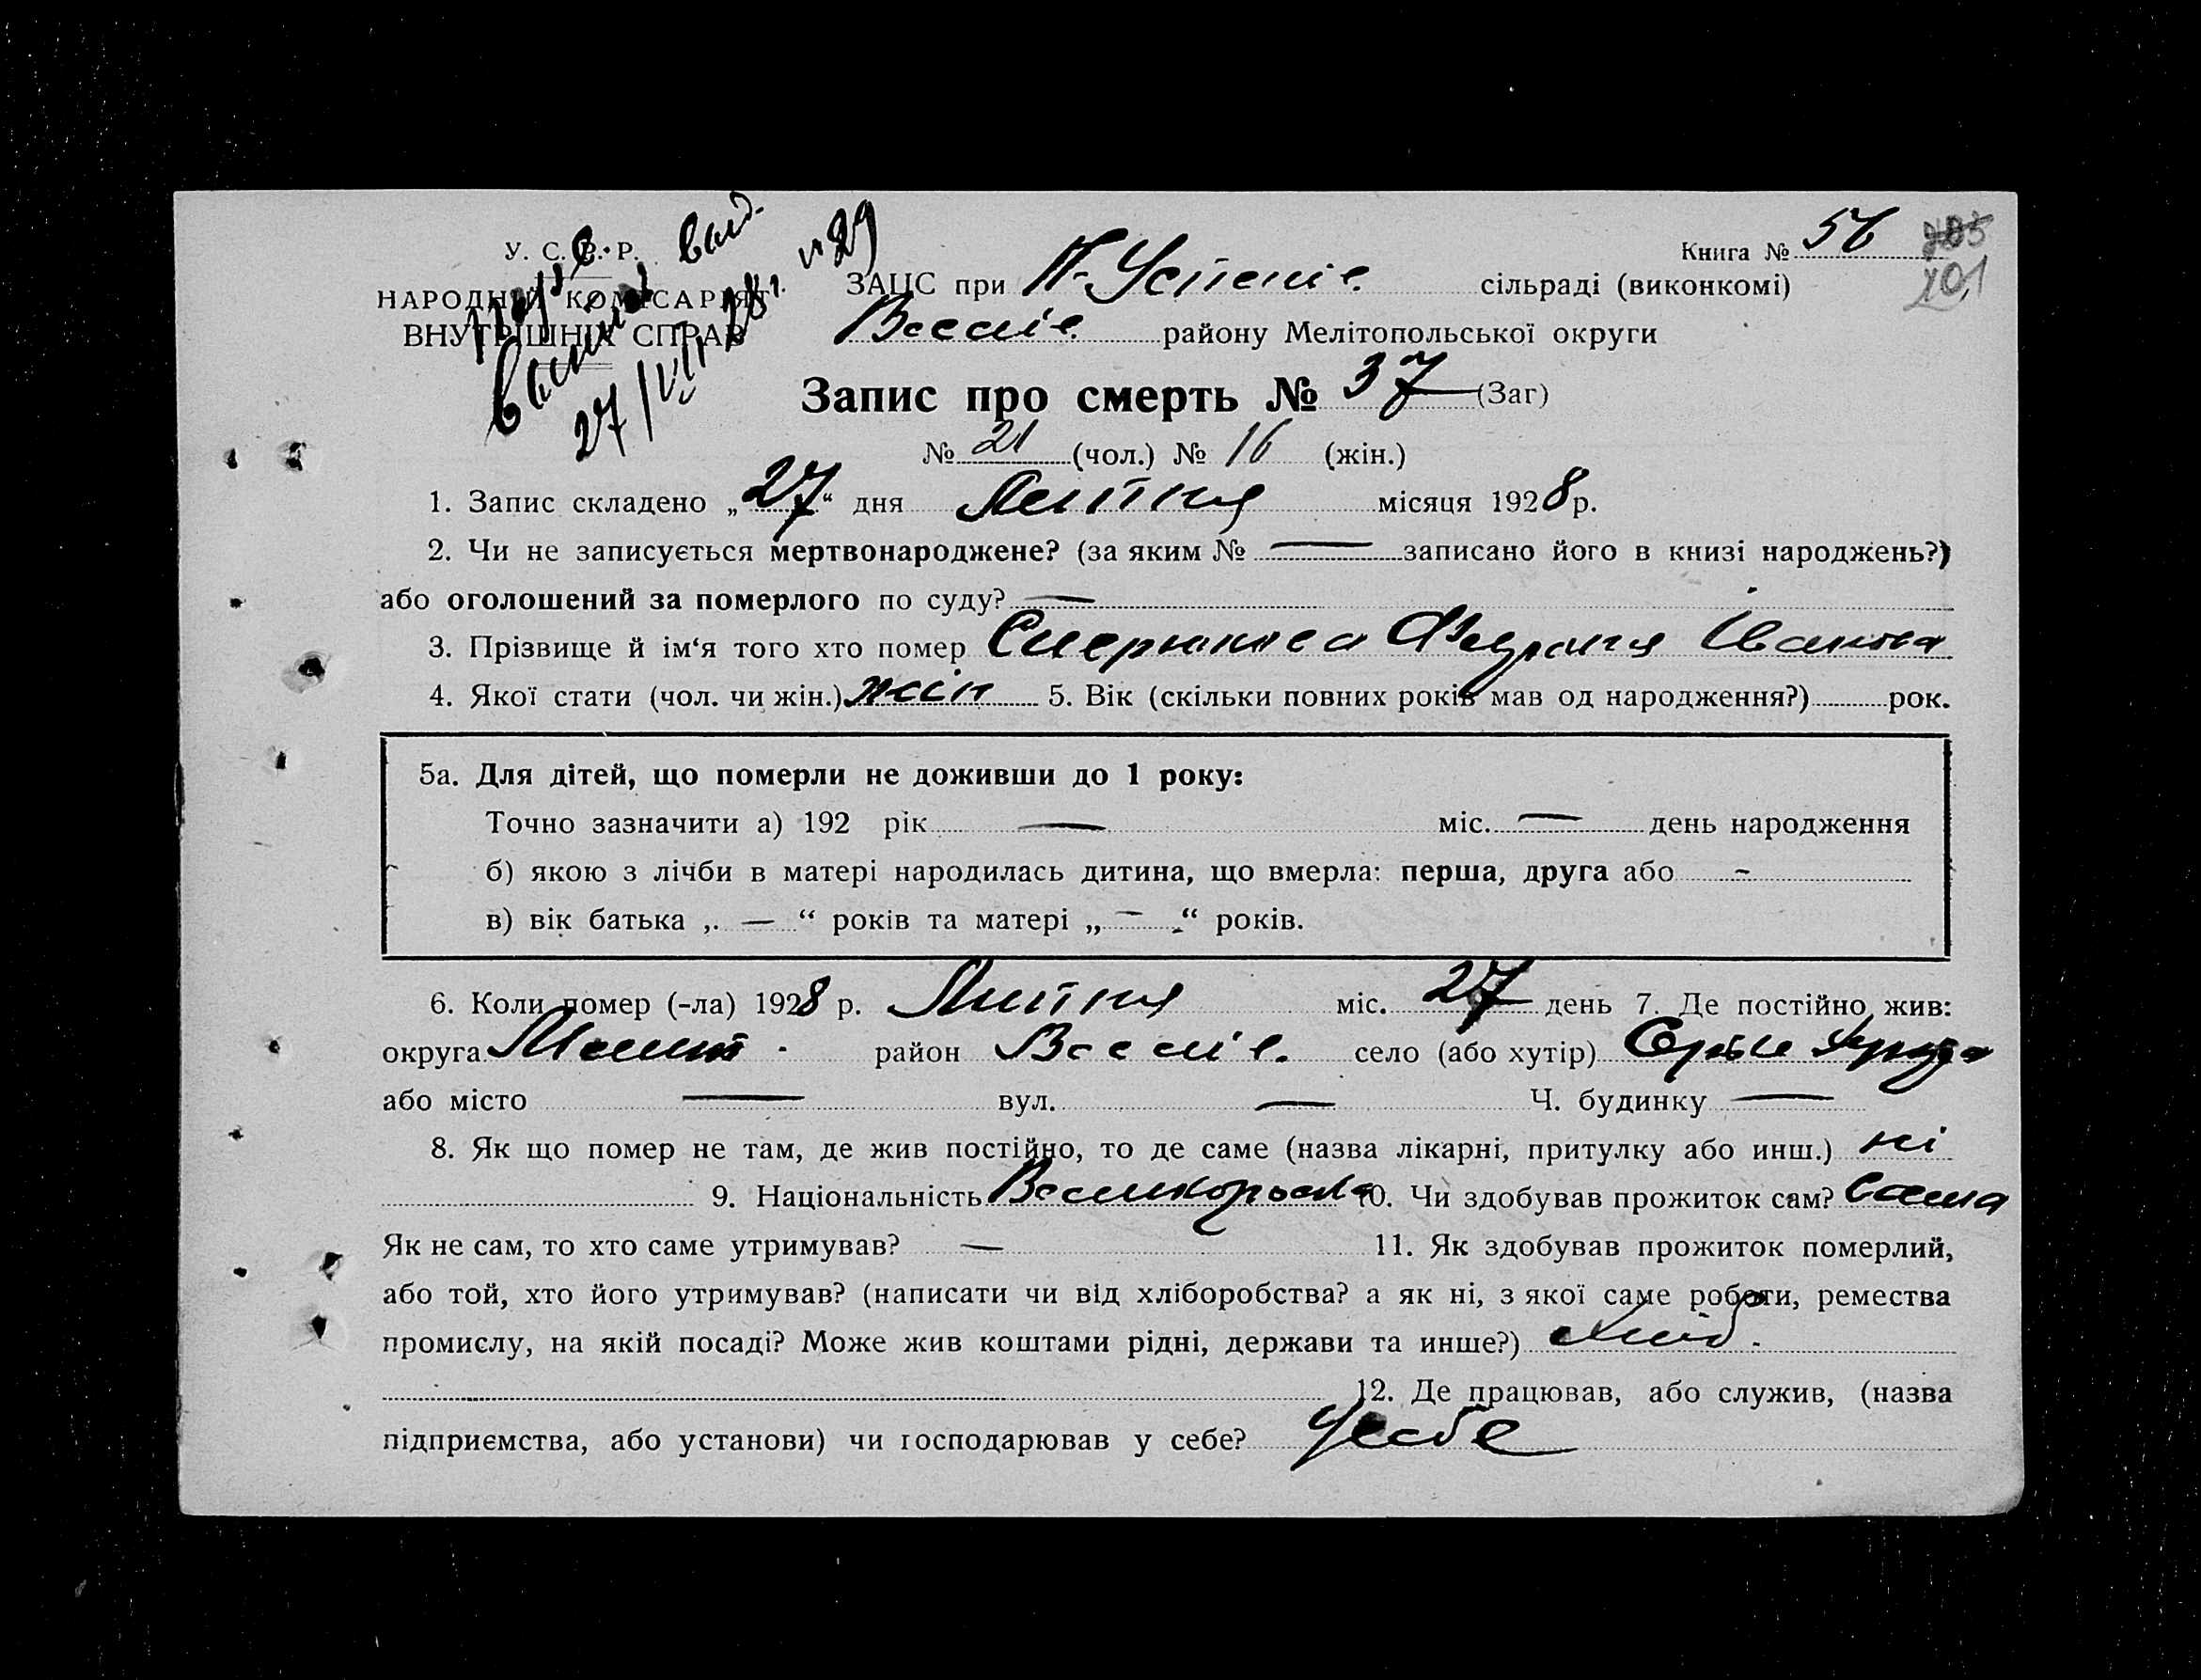 У. С. Р. Р.
НАРОДНИЙ КОМІСАРІЯТ
ВНУТРІШНІХ СПРАВ
27/VII 28 г. № 29
Книга № 56
201
ЗАЦС при Н-Успенів. сільраді (виконкомі)
Веселів. району Мелітопольської округи
Запис про смерть № 37 (Заг)
№ 21 (чол.) № 16 (жін.)
1. Запис складено „27“ дня Липня місяця 1928 р.
2. Чи не записується мертвонароджене? (за яким № — записано його в книзі народжень?)
або оголошений за померлого по суду? —
3. Прізвище й ім‘я того хто помер Іванова
4. Якої стати (чол. чи жін.) жін 5. Вік (скільки повних років мав од народження?) рок.
5а. Для дітей, що померли не доживши до 1 року:
Точно зазначити а) 192 рік — міс. — день народження
б) якою з лічби в матері народилась дитина, що вмерла: перша, друга або –
в) вік батька „ — “ років та матері „ — “ років.
6. Коли помер (-ла) 1928 р. Липня міс. 27 день 7. Де постійно жив:
округа Мелит. район Веселів. село (або хутір)
або місто — вул. — Ч. будинку —
8. Як що помер не там, де жив постійно, то де саме (назва лікарні, притулку або инш.) ні
9. Національність Великороска 10. Чи здобував прожиток сам? Сама
Як не сам, то хто саме утримував? — 11. Як здобував прожиток померлий,
або той, хто його утримував? (написати чи від хліборобства? а як ні, з якої саме роботи, ремества
промислу, на якій посаді? Може жив коштами рідні, держави та инше?) хліб.
12. Де працював, або служив, (назва
підприємства, або установи) чи господарював у себе? У себе